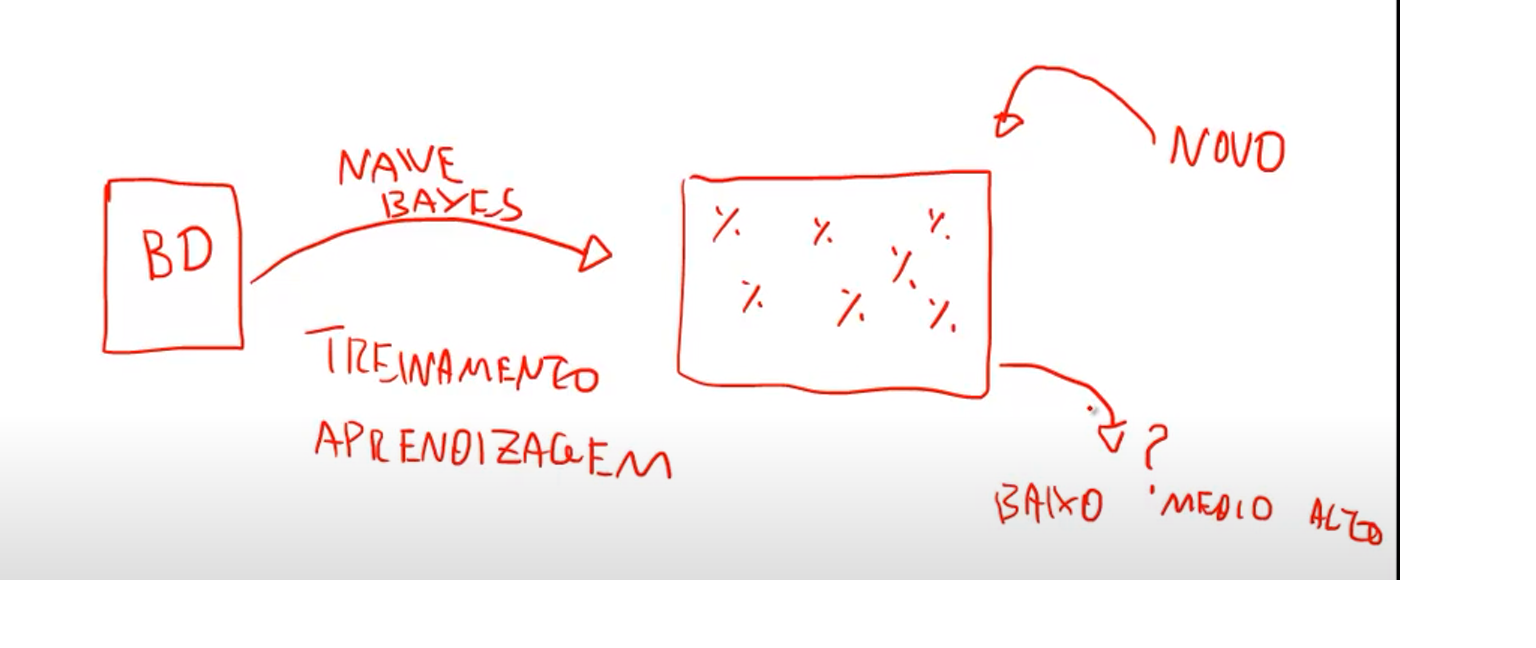 NAIVE
BAYES
BD
TREINAMENTO
APRENDIZAGEM
% % %
%
% % %
NOVO
?
BAIXO MEDIO ALTO